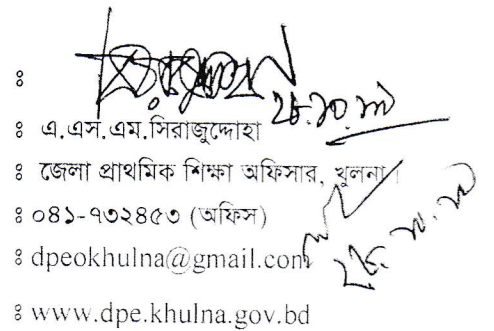 ঃ
ঃ এ.এস.এম.সিরাজুদ্দোহা
ঃ জেলা প্রাথমিক শিক্ষা অফিসার, খুলনা।
ঃ ০৪১-৭৩২৪৫৩ (অফিস)
ঃ dpeokhulna@gmail.com
ঃ www.dpe.khulna.gov.bd